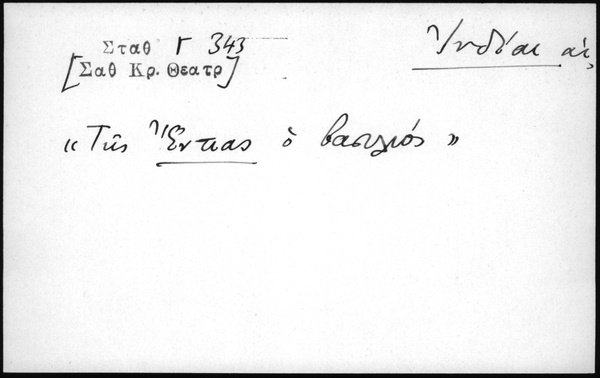 Σταθ Γ 343 Ἰνδίαι αἱ,
[Σαθ Κρ. Θεατρ]
«Τῆς Ἴντιας ὁ βασιλιός»